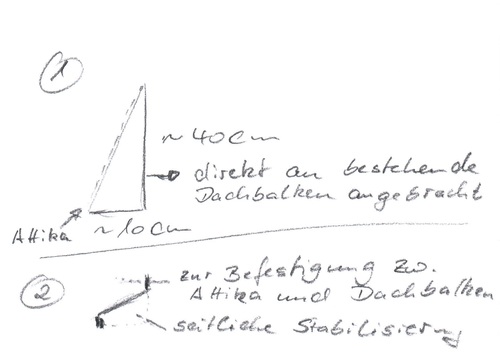 1
~ 40 cm
direkt an bestehende
Dachbalken angebracht
Attika
~ 10 cm
2
zur Befestigung zw.
Attika und Dachbalken
seitliche Stabilisierung